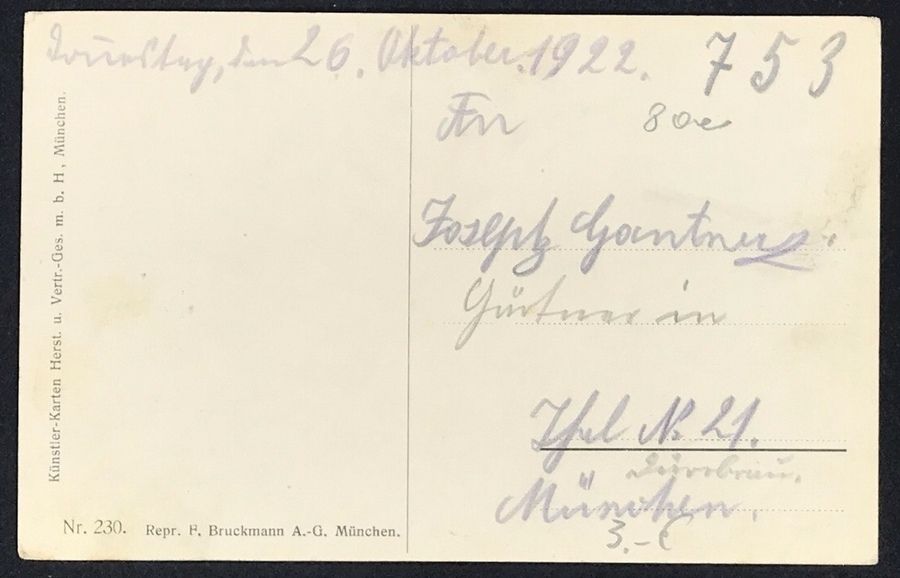 Donnestag, den 26. Oktober. 1922.
753
An
80e
Joseph Gantner
Gärtner in
Thal N. 21.
München.
3.-€
Künstler-Karten Herst. u. Vertr.-Ges. m. b. H, München.
Nr. 230. Repr. F. Bruckmann A.-G. München.